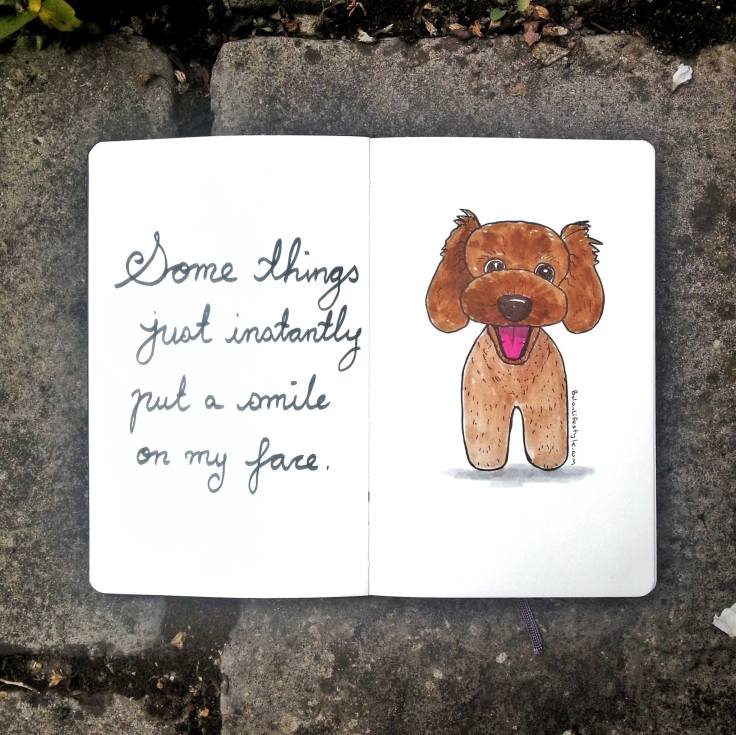 Some things
just instantly
put a smile
on my face.